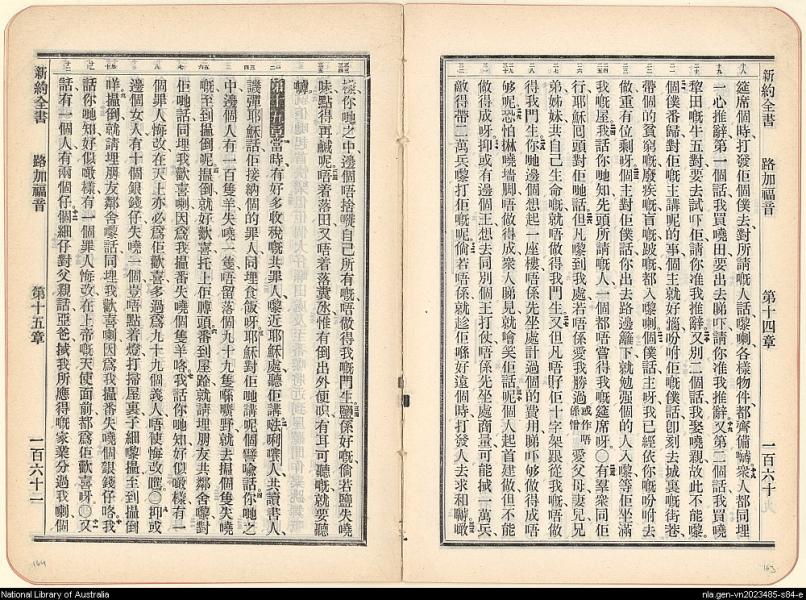 新約全書 路加福音 第十四章 一百六十
筵席個時打發佢個僕去對所請嘅人話嚟喇各樣物件都齊備嘞衆人都同埋
一心推辭第一個話我買嘵田要出去睇吓請你准我推辭又第二個話我買嘵
犂田嘅牛五對要去試吓佢請你准我推辭又別二個話我娶嘵親故此不能嚟
個僕番歸對佢嘅主講呢的事個主就好惱吩咐佢嘅僕話卽刻去城裏嘅街巷
帶個的貧窮嘅廢疾嘅盲嘅跛嘅都入嚟喇個僕話主呀我已經依你嘅吩咐去
做重有位剩呀個主對佢僕話你出去路邊籬下就勉强個的人入嚟等佢坐滿
我嘅屋我話你哋知先頭所請嘅人一個都唔當得我嘅筵席呀〇有羣衆同佢
行耶穌囘頭對佢哋話但凡嚟到我處若唔係愛我勝過或作唔係惜愛父母妻兒兄
弟姊妹共自己生命嘅就唔做得我門生又但凡唔㪐佢十字架跟從我嘅唔做
得我門生你哋邊個想起一座樓唔係先坐處計過個的費用睇吓够做得成唔
够呢恐怕椕嘵墻脚唔做得成衆人睇見就噲笑佢話呢個人起首建做但不能
做得成呀抑或有邊個王想去同別個王打仗唔係先坐處商量可能㧯一萬兵
敵得帶二萬兵嚟打佢嘅呢倘若唔係就趁佢喺好遠個時打發人去求和嘞噉
樣你哋之中邊個唔捨嘥自己所有嘅唔做得我嘅門生鹽係好嘅倘若鹽失嘵
味點得再鹹呢唔着落田又唔着落糞惟有倒出外便呮有耳可聽嘅就要聽
嘞
第十五章當時有好多收稅嘅共罪人嚟近耶穌處聽佢講𠴕唎㘔人共讀書人
譏彈耶穌話佢接納個的罪人同埋食飯呀耶穌對佢哋講呢個譬喻話你哋之
中邊個人有一百隻羊失嘵一隻唔留落個九十九隻喺曠野就去搵個隻失嘵
嘅至到搵倒呢搵倒就好歡喜托上佢膊頭番到屋跲就請埋朋友共鄰舍嚟對
佢哋話同埋我歡喜喇因爲我搵番失嘵個隻羊咯我話你哋知好似噉樣有一
個罪人悔改在天上亦必爲佢歡喜多過爲九十九個義人唔使悔改嘅〇抑或
邊個女人有十個銀錢仔失嘵一個豈唔點着燈打掃屋裏子細嚟搵至到搵倒
咩搵倒就請埋朋友鄰舍嚟話同埋我歡喜喇因爲我搵番失嘵個銀錢仔咯我
話你哋知好似噉樣有一個罪人悔改在上帝嘅天使面前都爲佢歡喜呀〇又
話有一個人有兩個仔個細仔對父親話亞爸㧾我所應得嘅家業分過我喇個
新約全書 路加福音 第十五章 一百六十一
164
163
National Library of Australia
nla.gen-vn2023485-s84-e